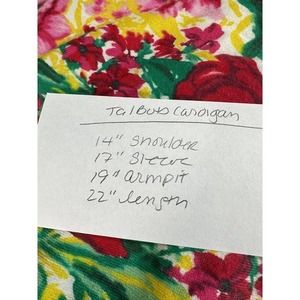 Talbots Cardigan
14" Shoulder
17" Sleeve
19" armpit
22" length